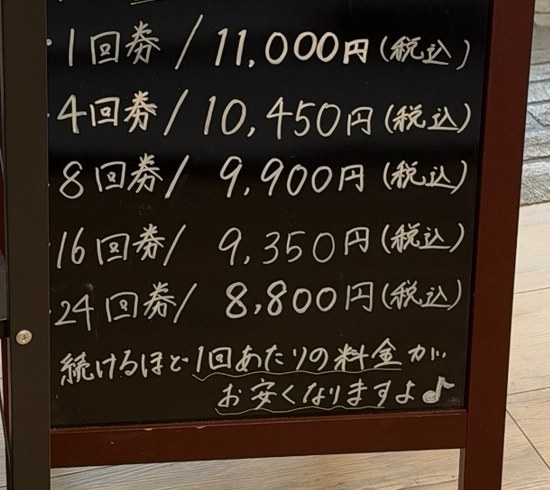 ・1回券 / 11,000円(税込)
・4回券 / 10,450円(税込)
・8回券 / 9,900円(税込)
・16回券 / 9,350円(税込)
・24回券 / 8,800円(税込)
続けるほど1回あたりの料金が…
お安くなりますよ♪